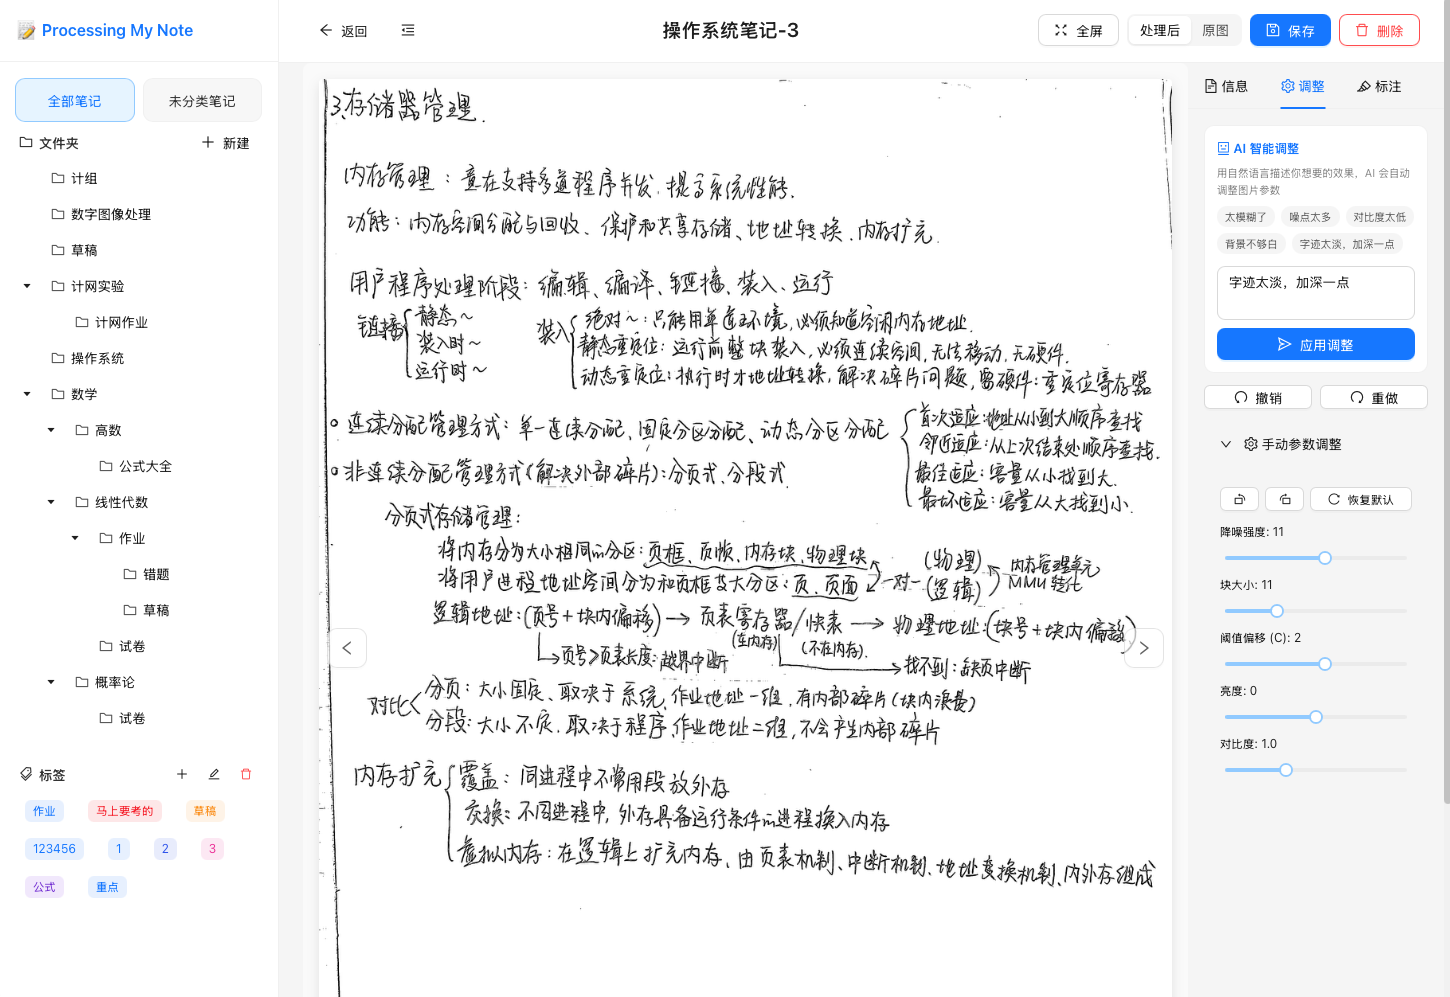 Processing My Note
返回
操作系统笔记-3
全屏
处理后
原图
保存
删除
全部笔记
未分类笔记
文件夹
新建
计组
数字图像处理
草稿
计网实验
计网作业
操作系统
数学
高数
公式大全
线性代数
作业
错题
草稿
试卷
概率论
试卷
标签
作业
马上要考的
草稿
123456
1
2
3
公式
重点
3.存储器管理.
内存管理：意在支持多道程序并发,提高系统性能.
功能：内存空间分配与回收、保护和共享存储、地址转换、内存扩充.
用户程序处理阶段：编辑、编译、链接、装入、运行
链接
静态~
装入时~
运行时~
装入
绝对~：只能用单道环境,必须知道空闲内存地址.
静态重定位：运行前整块装入,必须连续空间,无法移动,无硬件.
动态重定位：执行时才地址转换,解决碎片问题,需硬件：重定位寄存器
连续分配管理方式：单一连续分配、固定分区分配、动态分区分配
首次适应：地址从小到大顺序查找
邻近适应：从上次结束处顺序查找.
最佳适应：容量从小找到大.
最坏适应：容量从大找到小.
非连续分配管理方式(解决外部碎片)：分页式、分段式
分页式存储管理：
将内存分为大小相同的分区：页框、页帧、内存块、物理块
将用户进程地址空间分为和页框等大分区：页、页面
一对一
(物理)
(逻辑)
内存管理单元
MMU 转化
逻辑地址：(页号+块内偏移)→页表寄存器/快表→物理地址：(块号+块内偏移)
(在内存)
(不在内存).
页号≥页表长度：越界中断
找不到：缺页中断
对比
分页：大小固定、取决于系统、作业地址一维,有内部碎片(块内浪费)
分段：大小不定,取决于程序,作业地址二维,不会产生内部碎片
内存扩充
覆盖：同进程中不常用段放外存
交换：不同进程中,外存具备运行条件的进程换入内存
虚拟内存：在逻辑上扩充内存、由页表机制、中断机制、地址变换机制、内外存组成
信息
调整
标注
AI 智能调整
用自然语言描述你想要的效果，AI 会自动
调整图片参数
太模糊了
噪点太多
对比度太低
背景不够白
字迹太淡，加深一点
字迹太淡，加深一点
应用调整
撤销
重做
手动参数调整
恢复默认
降噪强度: 11
块大小: 11
阈值偏移 (C): 2
亮度: 0
对比度: 1.0